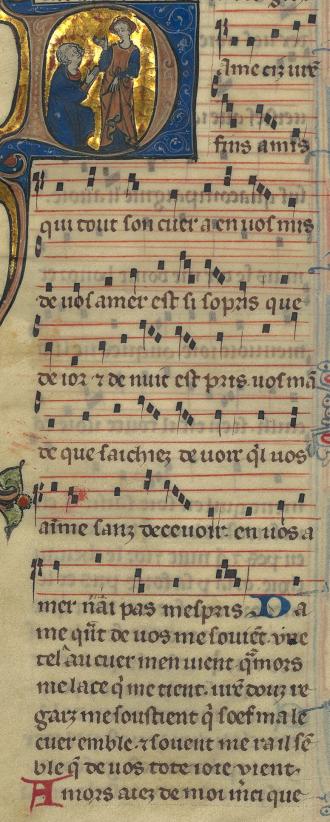 Dame cız ur̄e
fıns amıs
quı tout son cuer a en uos mıs
de uos amer est sı soprıs que
de ıor ⁊ de nuıt est prıs. uos mā
de que saıchıez de uoır q̄l uos
aıme sanz deceuoır. en uos a
mer nāı pas mesprıs Da
me qn̄t de uos me souıēt. vne
tel au cuer men uıent q̄mors
me lace q̄ me tıent. ur̄e douz re
garz me soustıent q̄ soef ma le
cuer emble. ⁊ souent me raıl sē
ble q̄ de uos tote ıoıe vıent.
Amors aıez de moı mcı que